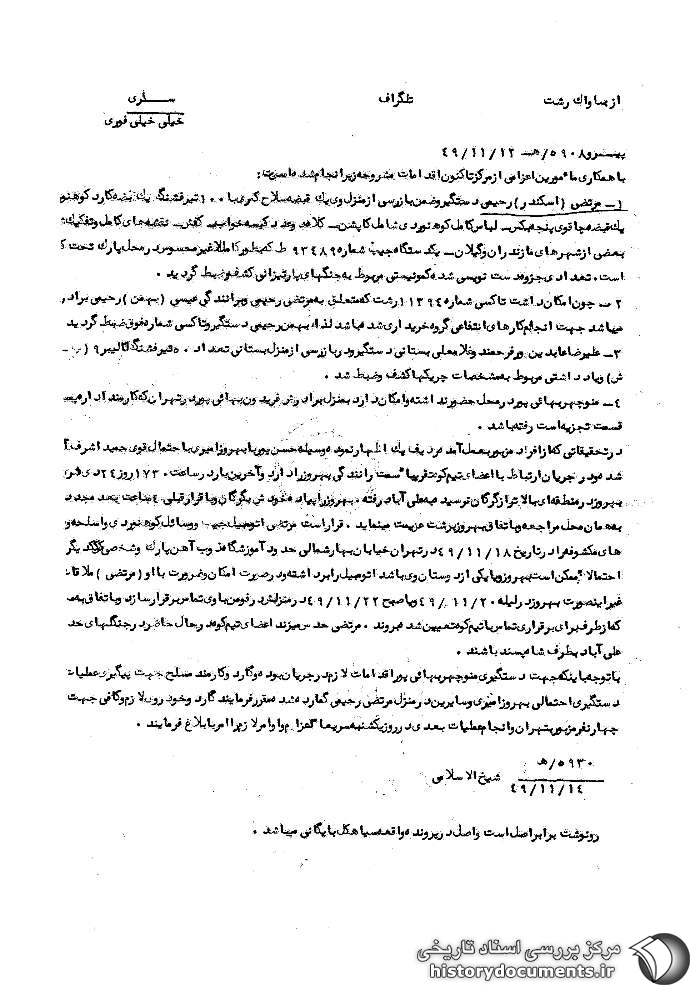 از ساواك رشت تلگراف ســـری
خیلی خیلی فوری
پیشرو ۵۹۰۸/هـ ۴۹/۱۱/۱۲
با همکاری مأمورین اعزامی از مرکز تاکنون اقدامات مشروحه زیر انجام شده است:
۱ـ مرتضی (اسکندر) رحیمی دستگیر وضمن بازرسی از منزل وی یك قبضه سلاح کمری با ۱۰۰ تیر فشنگ یك قبضه کارد کوهنو
یك قبضه چاقوی پنجه بکس ـ لباس کامل کوهنوردی شامل کاپشن ـ کلاه دو عدد کیسه خواب ـ کفش ـ نقشه های کامل وتفکیك
بعضی از شهرهای مازندران وگیلان ـ یکدستگاه جیپ شماره ۹۳۴۸۹ ط که بطور کاملا غیر محسوس در محل پارك تحت ک
است، تعدادی جزوه دست نویسی شده کمونیستی مربوط به جنگهای پارتیزانی کشف وضبط گردید.
۲ـ چون امکان داشت تاکسی شماره ۱۱۳۹۴ رشت که متعلق به مرتضی رحیمی وبرانندگی عیسی (بهمن) رحیمی برادر
میباشد جهت انجام کارهای انتفاعی گروه خریداری شده باشد لذا بهمن رحیمی دستگیر وتاکسی شماره فوق ضبط گردید
۳ـ علیرضا عابدین پور فرحمند وغلامعلی بستانی دستگیر ودر بازرسی از منزل بستانی تعداد ۵۰ تیر فشنگ کالیبر ۹ (
ش) ویادداشتی مربوط به مشخصات چریکها کشف وضبط شد.
۴ـ منوچهر بهائی پور در محل حضور نداشته وامکان دارد بمنزل برادرش فریدون بهائی پور در تهران که کارمند اداره
قسمت تجزیه است رفته باشد.
در تحقیقاتی که از افراد مزبور بعمل آمد ردیف یك اظهار نموده بوسیله حسن پور با بهروز امیری با احتمال قوی حمید اشرف
شده ودر جریان ارتباط با اعضای تیم کوه تقریبا سمت رانندگی بهروز را دارد وآخرین بار در ساعت ۱۷۳۰ روز ۲۴ دی
بهروز در منطقه ای بالاتر از گرگان نرسیده به علی آباد رفته ه بهروز را پیاده وخودش بگرگان وبا قرار قبلی ۴ ساعت بعد مجدد
به همان محل مراجعه وباتفاق بهروز برشت عزیمت مینماید. قرار است مرتضی اتومبیل جیپ ووسائل کوهنوردی واسلحه و
های مکشوفه را در تاریخ ۴۹/۱۱/۱۸ در تهران خیابان بهار شمالی حدود آموزشگاه ذوب آهن پارك وشخصی دیگر
احتمالا ممکن است بهروز ویا یکی از دوستان وی باشد اتومبیل را برداشته ودر صورت امکان وضرورت با او (مرتضی) ملاقا
غیر اینصورت بهروز در لیله ۴۹/۱۱/۲۰ ویا صبح ۴۹/۱۱/۲۲ در منزلش در فومن با وی تماس برقرار سازد وباتفاق
که از طرف برای برقراری تماس با تیم کوه تعیین شده بروند. مرتضی حدس میزند اعضای تیم کوه در حال حاضر در جنگلهای حد
علی آباد بطرف شاه پسند باشند.
با توجه باینکه جهت دستگیری منوچهر بهائی پور اقدامات لازم در جریان بوده وگارد وکارمند مسلح جهت پیگیری عملیات
دستگیری احتمالی بهروز امیری وسایرین در منزل مرتضی رحیمی گمارده شده مقرر فرمایند گارد وخودروی لازم وکافی جهت
چهار نفر مزبور بتهران وانجام عملیات بعدی در روز یکشنبه سریعا اعزام واوامر لازم را امر بابلاغ فرمایند.
۵۹۳۰/هـ
شیخ الاسلامی
۴۹/۱۱/۱۴
رونوشت برابر اصل است واصل در پرونده واقعه سیاهکل بایگانی میباشد.
مرکز بررسی اسناد تاریخی
historydocuments.ir